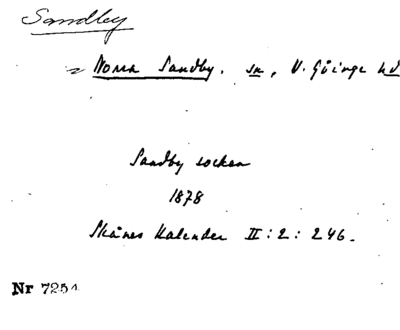 Sandby
= Norra Sandby. sn, V. Göinge hd
Sandby socken
1878
Skånes Kalender II : 2 : 246.
Nr 7254